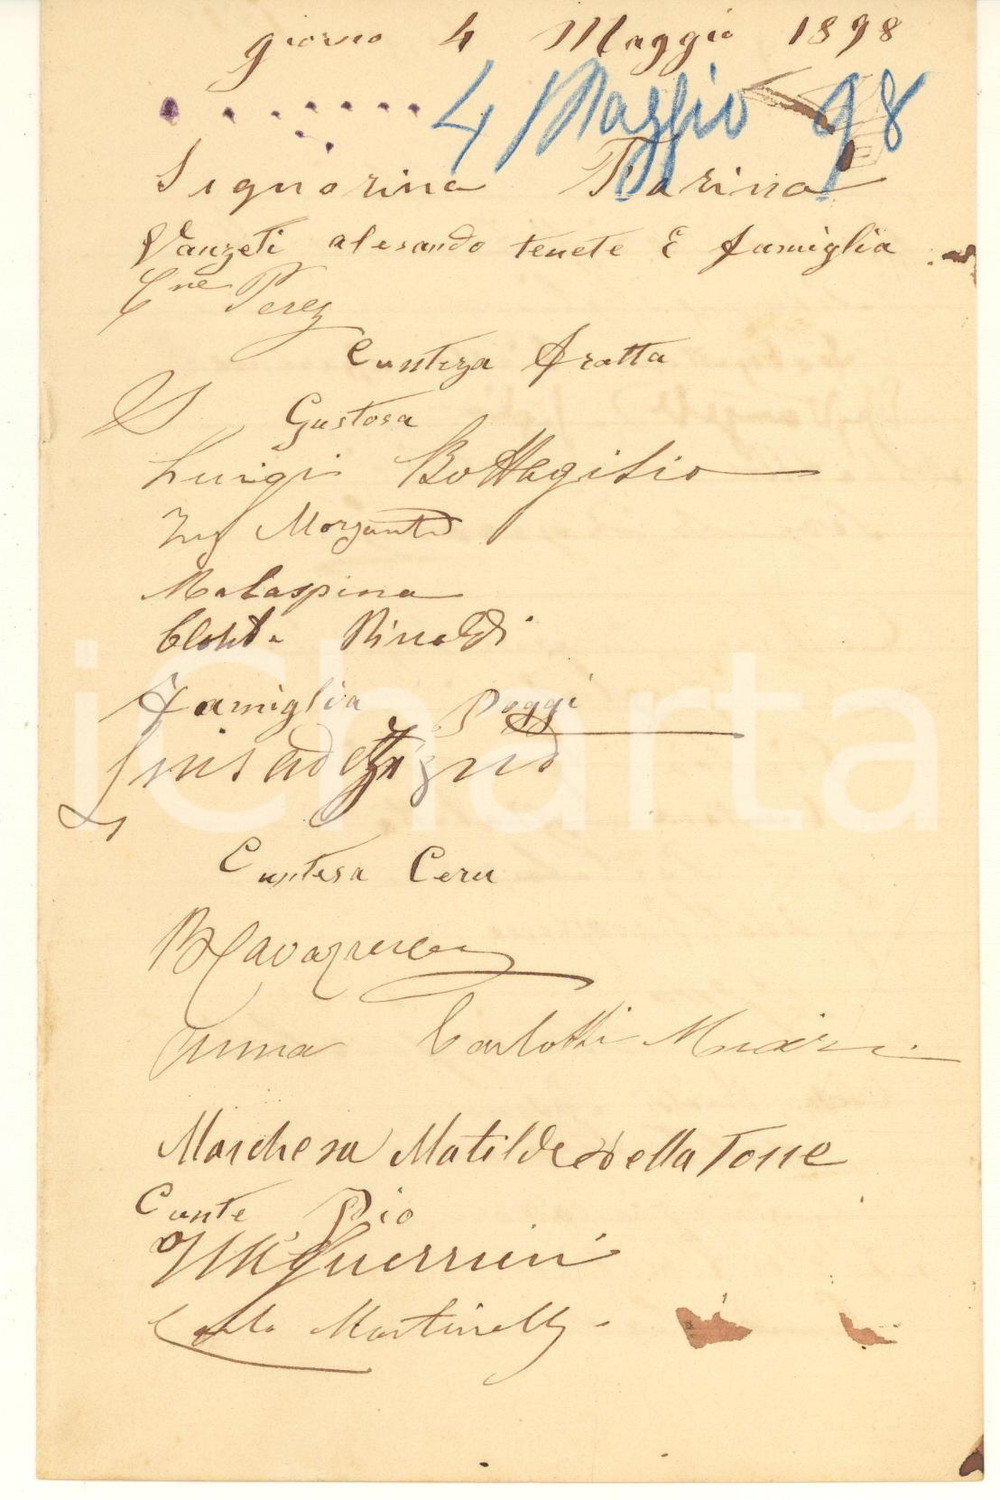 giorno 4 Maggio 1898
4 Maggio 98
Signorina Farina
Vanzeti alesando tenete E famiglia
Cne Perez
Cunteza Fratta
Gustosa
Luigi Bottagisio
Ing Morzanti
Malaspina
Clotilda Rinaldi
Famiglia Poggi
Luisa de Zigno
Cuntesa Ceru
Anna Carlotti Miari
Marchesa Matilde della Torre
Cunte Pio
Guerrieri
Carlo Martinelli
iCharta